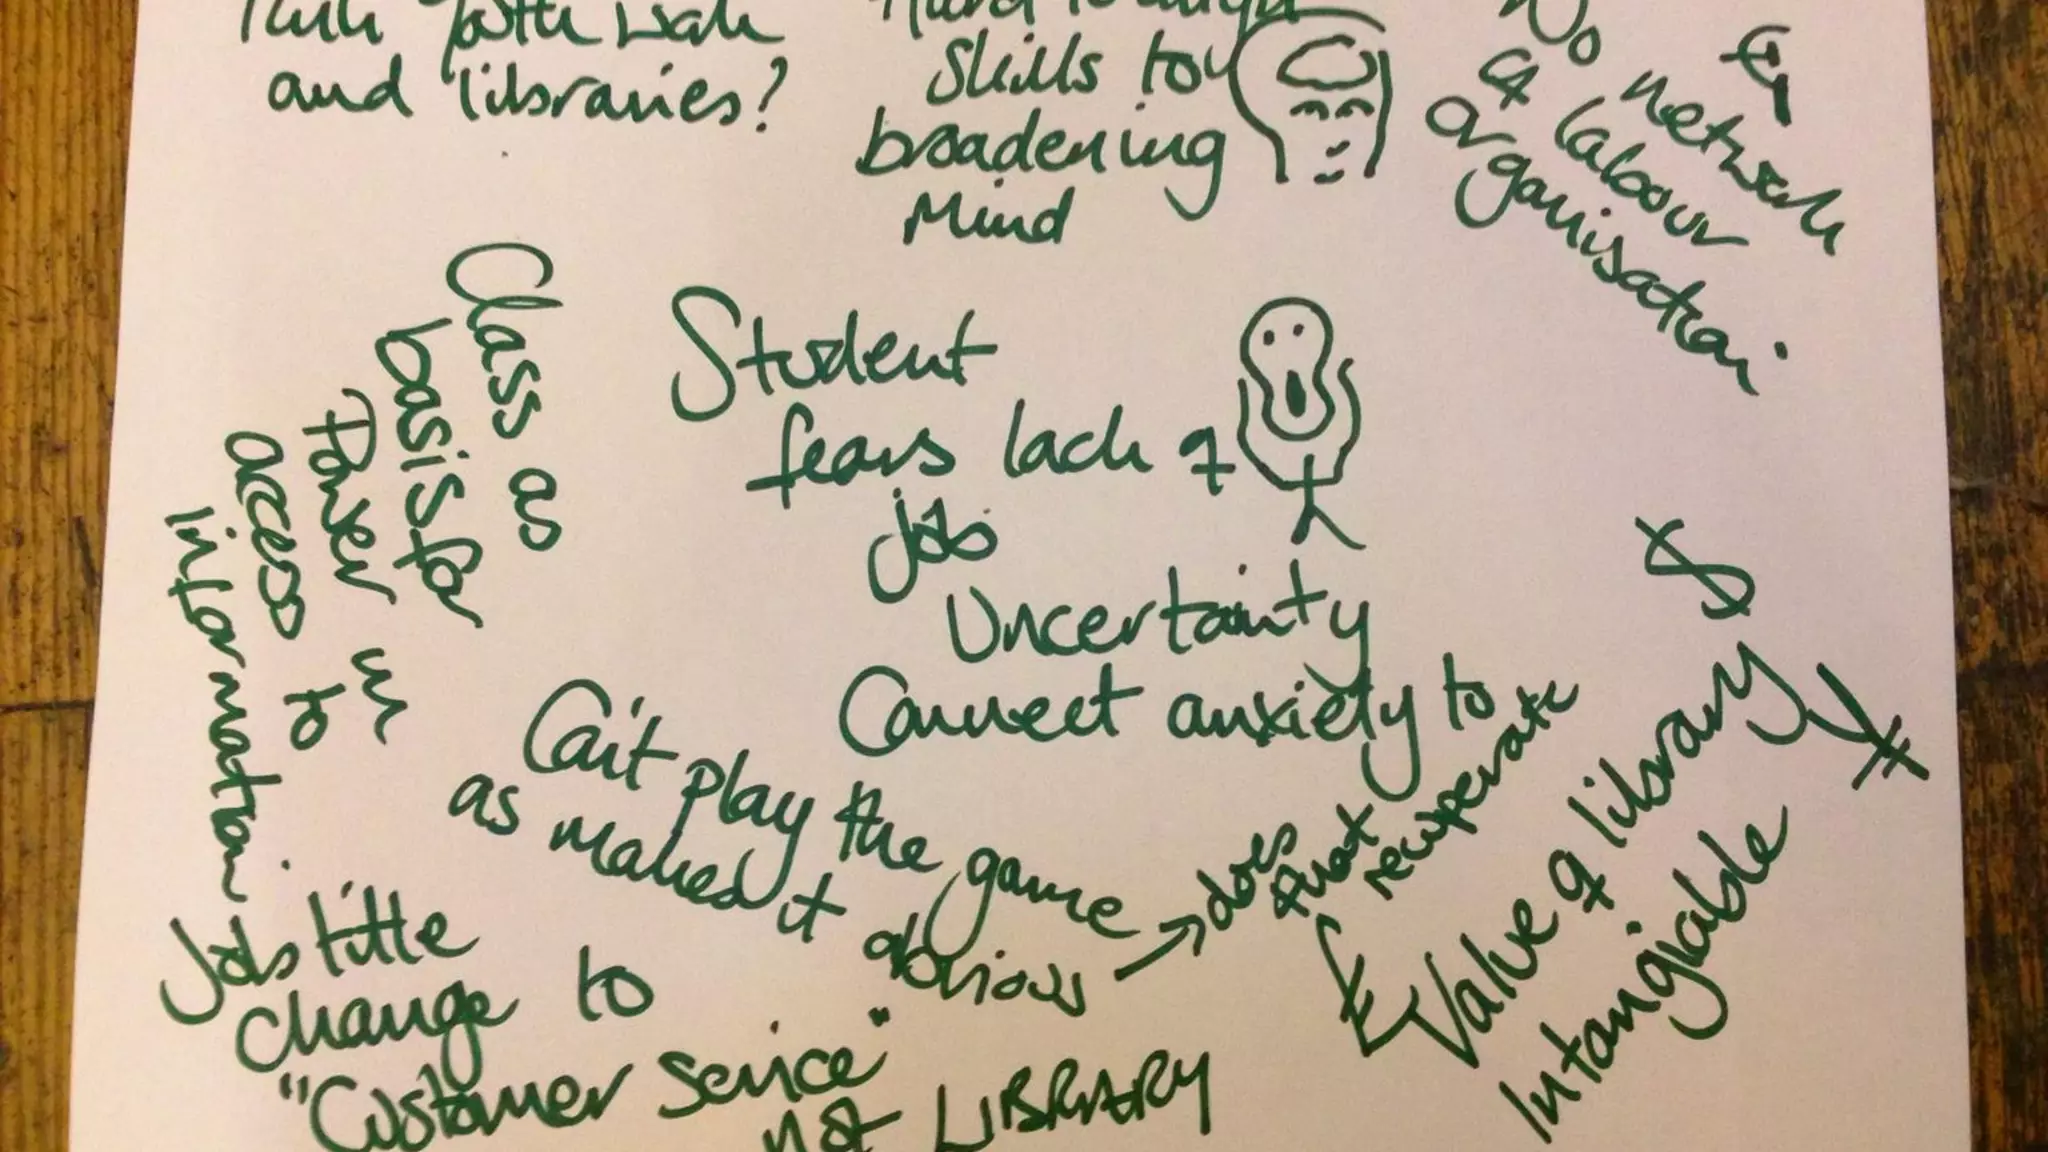 and libraries?
skills to
broadening
Mind
No network
& labour
organisation
Class as
basis for
Power in
access to
information
Student
fears lack of
job
Uncertainty
Connect anxiety to
Can't play the game
as makes it obvious → does
that
recuperate
$
Value of library
Intangiable
Job title
change to
"Customer Service"
not LIBRARY